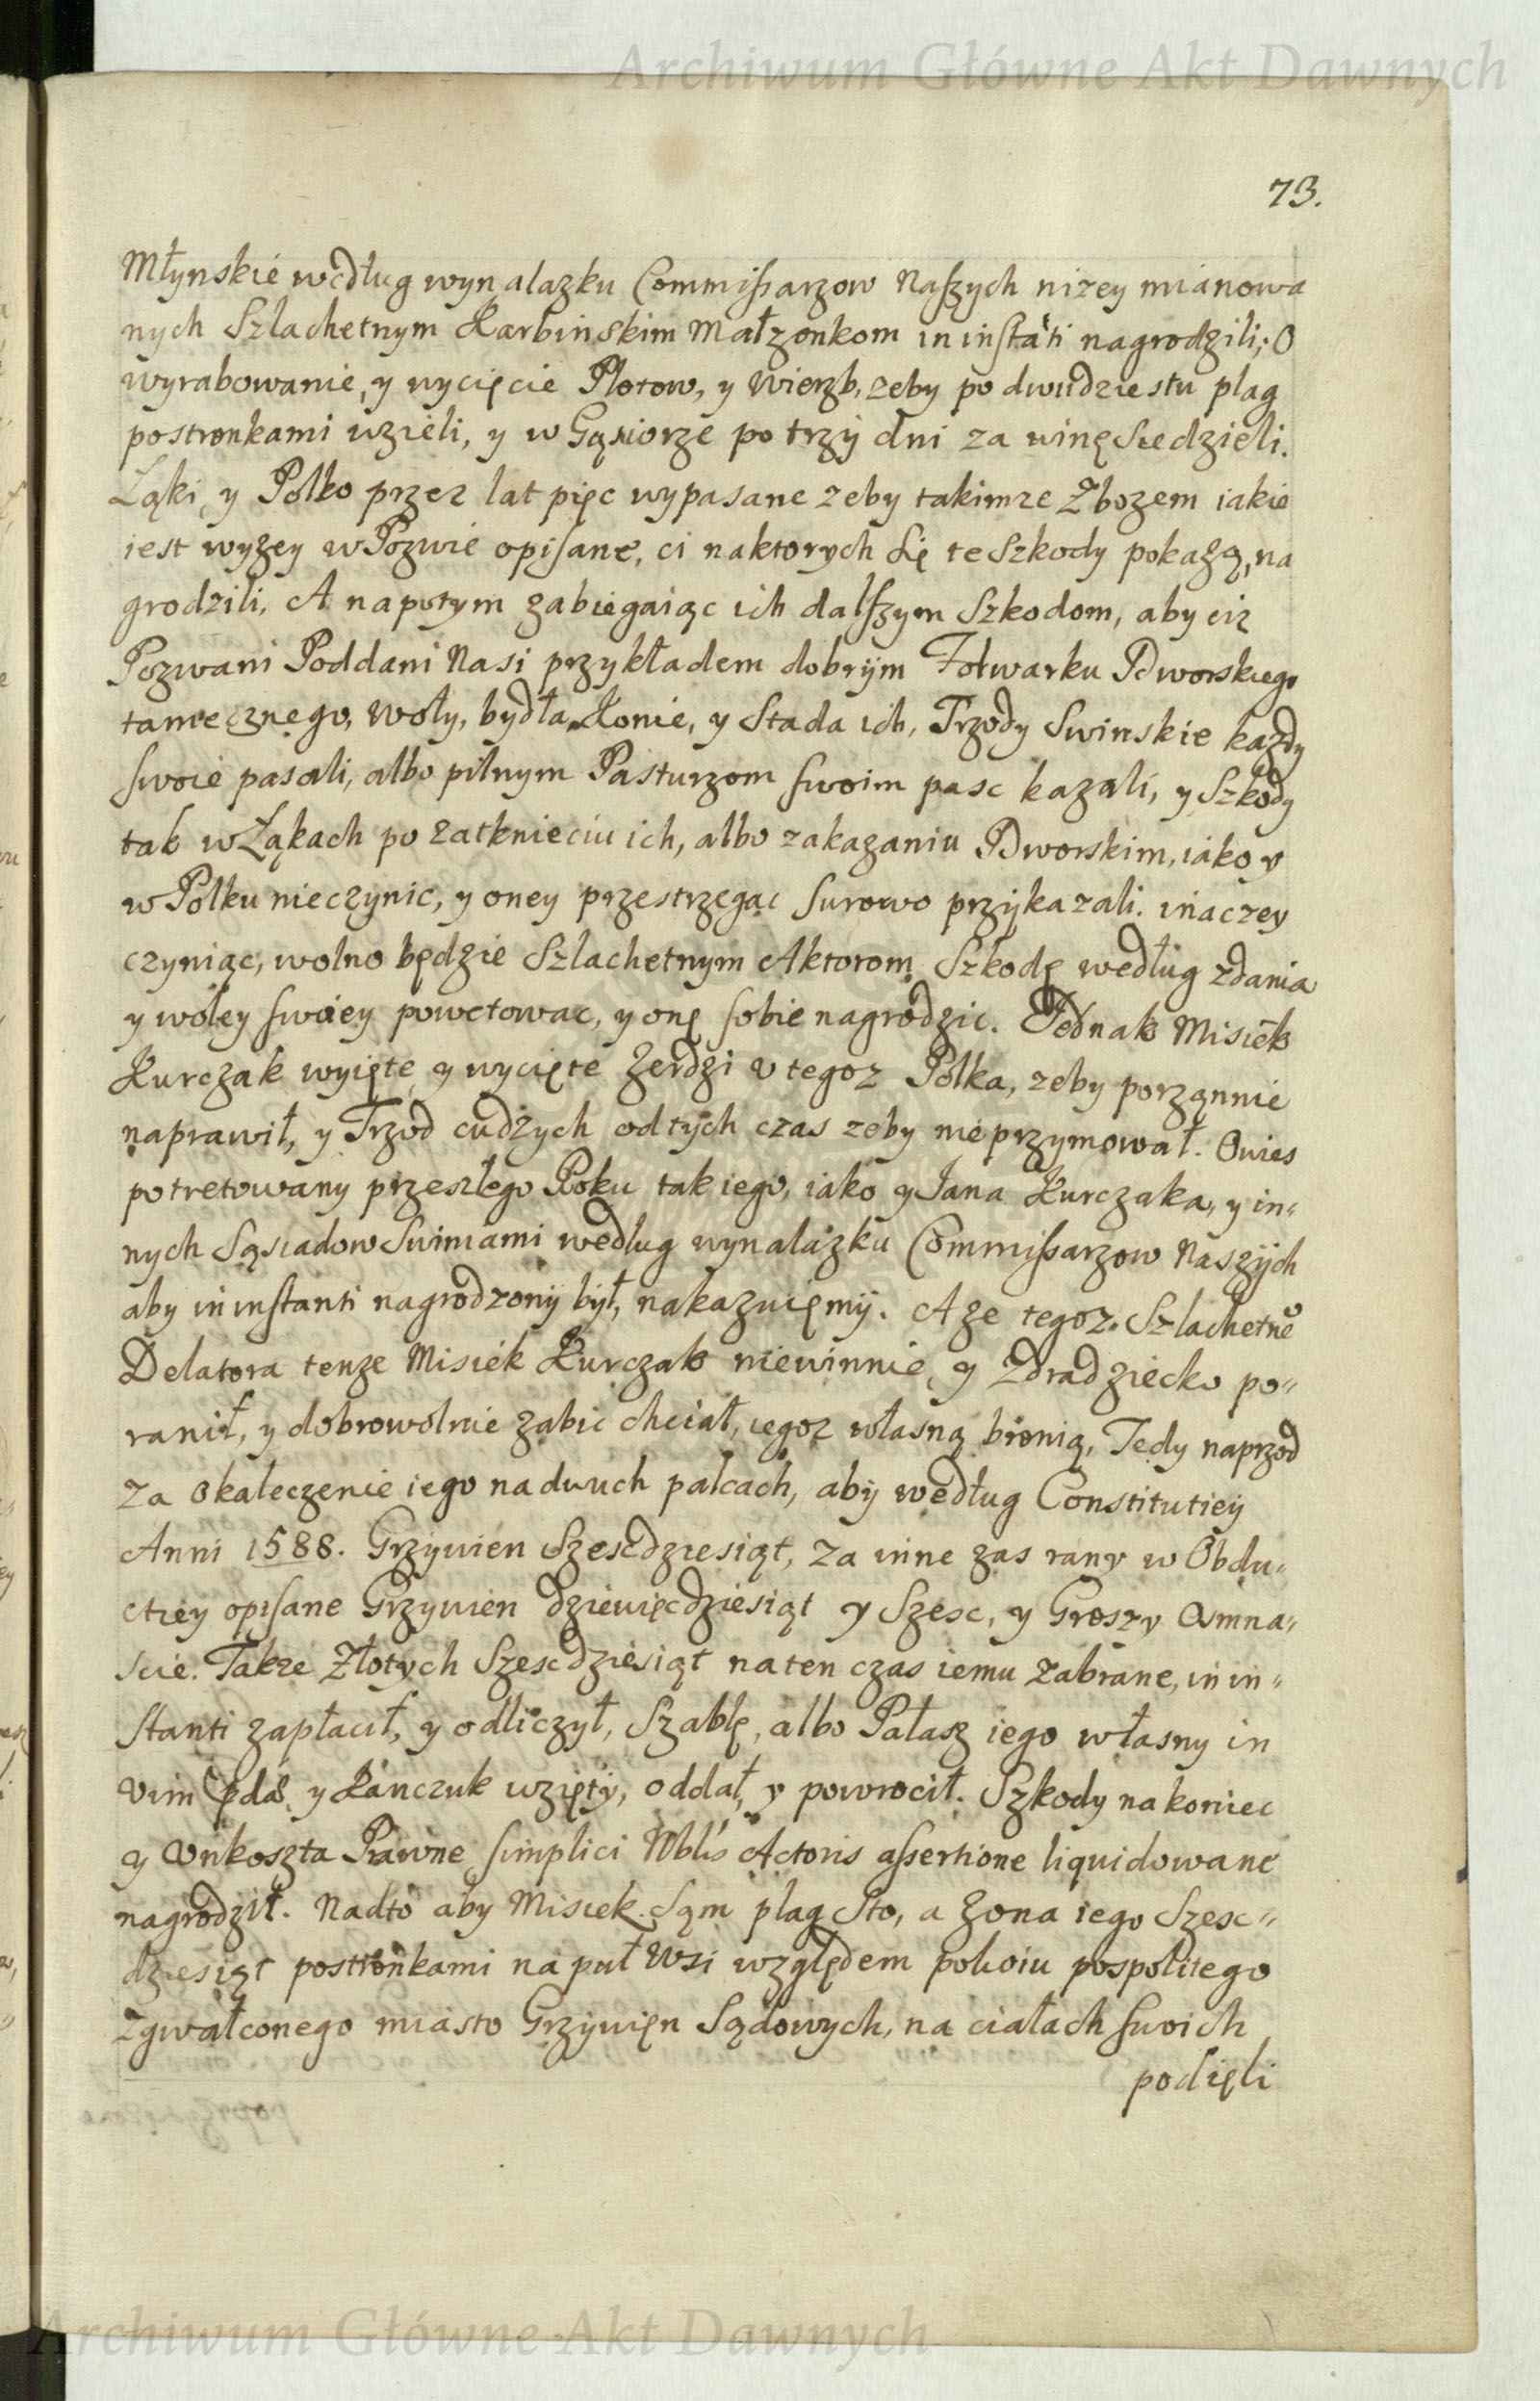 Archiwum Główne Akt Dawnych
73.
Młynskie według wynalazku Commissarzow Naszych nizey mianowa
nych Szlachetnym Karbinskim Małzonkom in instãti nagrodzili; O
wyrabowanie, y wycięcie Płotow, y Wierzb, zeby po dwudziestu plag
postronkami wzieli, y w Gąsiorze po trzy dni za winę siedzieli.
Łąki, y Polko przez lat pięc wypasane zeby takimze Zbozem iakie
iest wyzey w Pozwie opisane, ci na ktorych się te Szkody pokazą, na
grodzili, A napotym zabiegaiąc ich dalszym Szkodom, aby ciz
Pozwani Poddani Nasi przykładem dobrym Folwarku Dworskiego
tamecznego, woły, bydła, Konie, y Stada ich, Trzody Swinskie kazdy
swoie pasali, albo pilnym Pasturzom swoim pasc kazali, y Szkody
tak w Łąkach po zatknieciu ich, albo zakazaniu Dworskim, iako y
w Polku nieczynic, y oney przestrzegac surowo przykazali. inaczey
czyniąc, wolno będzie Szlachetnym Aktorom Szkodę według zdania
y woley swoiey powetowac, y onę sobie nagrodzic. Jednak Misiek
Kurczak wyięte y wycięte Zerdzi v tegoz Polka, zeby porząnnie
naprawił, y Trzod cudzych od tych czas zeby nie przymował. Owies
potretowany przeszłego Roku tak iego, iako y Jana Kurczaka, y in„
nych Sąsiadow Swiniami według wynalazku Commissarzow Naszych
aby in instanti nagrodzony był, nakazuięmy. A ze tegoz Szlachetne͡o
Delatora tenze Misiek Kurczak niewinnie, y Zdradziecko po„
ranił, y dobrowolnie zabic chciał, iegoz własną bronią, Tedy naprzod
za okaleczenie iego na dwuch palcach, aby według Constitutiey
Anni 1588. Grzywien Szescdziesiąt, za inne zas rany w Obdu„
ctiey opisane Grzywien dziewięcdziesiąt y Szesc, y Groszy Osmna„
scie. Takze Złotych Szescdziesiąt na ten czas iemu zabrane, in in„
stanti zapłacił, y odliczył, Szablę, albo Pałasz iego własny in
vim pdæ, y Kanczuk wzięty, oddał, y powrocił. Szkody nakoniec
y Vnkoszta Prawne simplici Nblis Actoris assertione liquidowane
nagrodził. Nadto aby Misiek Sąm plag Sto, a zona iego Szesc„
dziesiąt postronkami na puł Wsi względem pokoiu pospolitego
zgwałconego miasto Grzywięn Sądowych, na ciałach swoich
podięli
Archiwum Główne Akt Dawnych